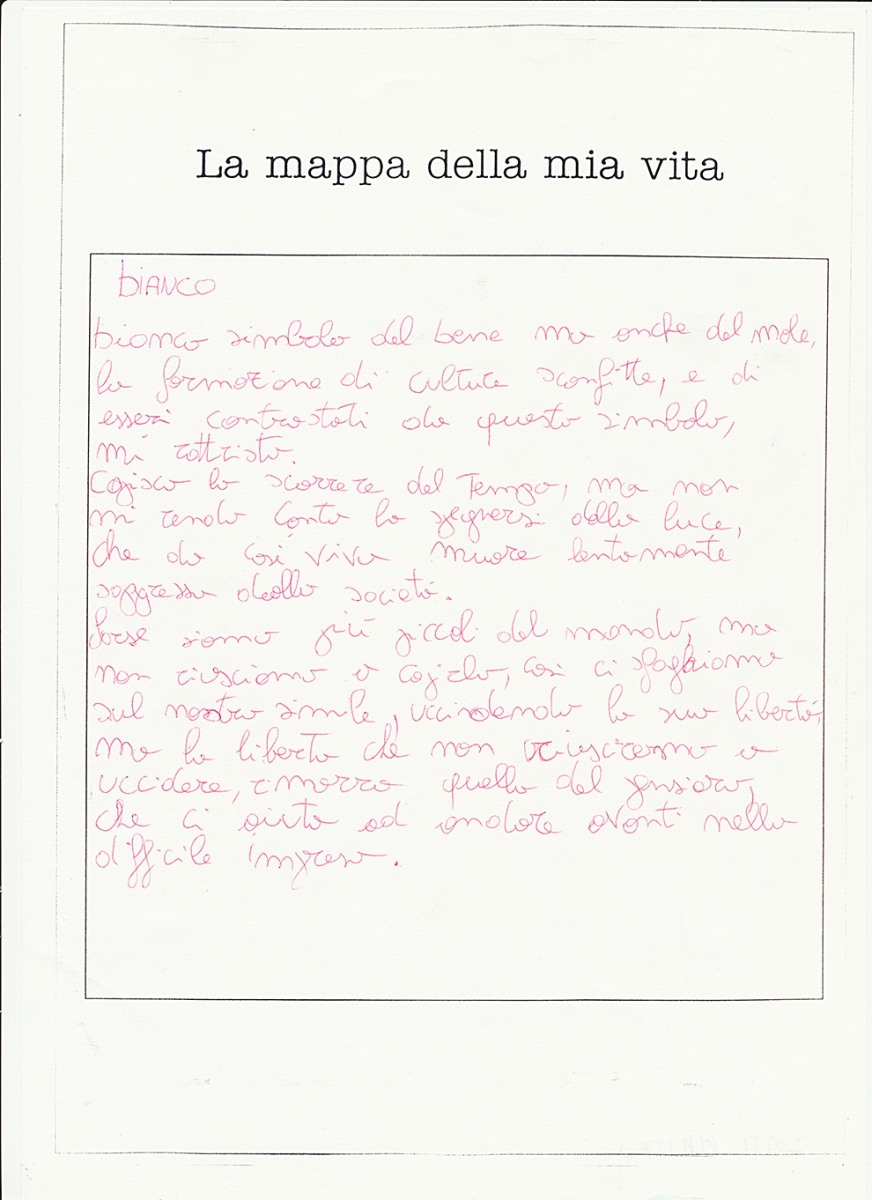 La mappa della mia vita
bIANCO
bianco simbolo del bene ma anche del male,
la formazione di culture sconfitte, e di
esseri contrastati da questo simbolo,
mi rattrista.
Capisco lo scorrere del Tempo, ma non
mi rendo conto lo spegnersi della luce,
che da così viva muore lentamente
soppressa dalla società.
forse siamo più piccoli del mondo, ma
non riusciamo a capirlo, così ci sfoghiamo
sul nostro simile, uccidendo la sua libertà,
ma la libertà che non riusciremo a
uccidere, rimarrà quella del pensiero,
che ci aiuta ad andare avanti nella
difficile impresa.